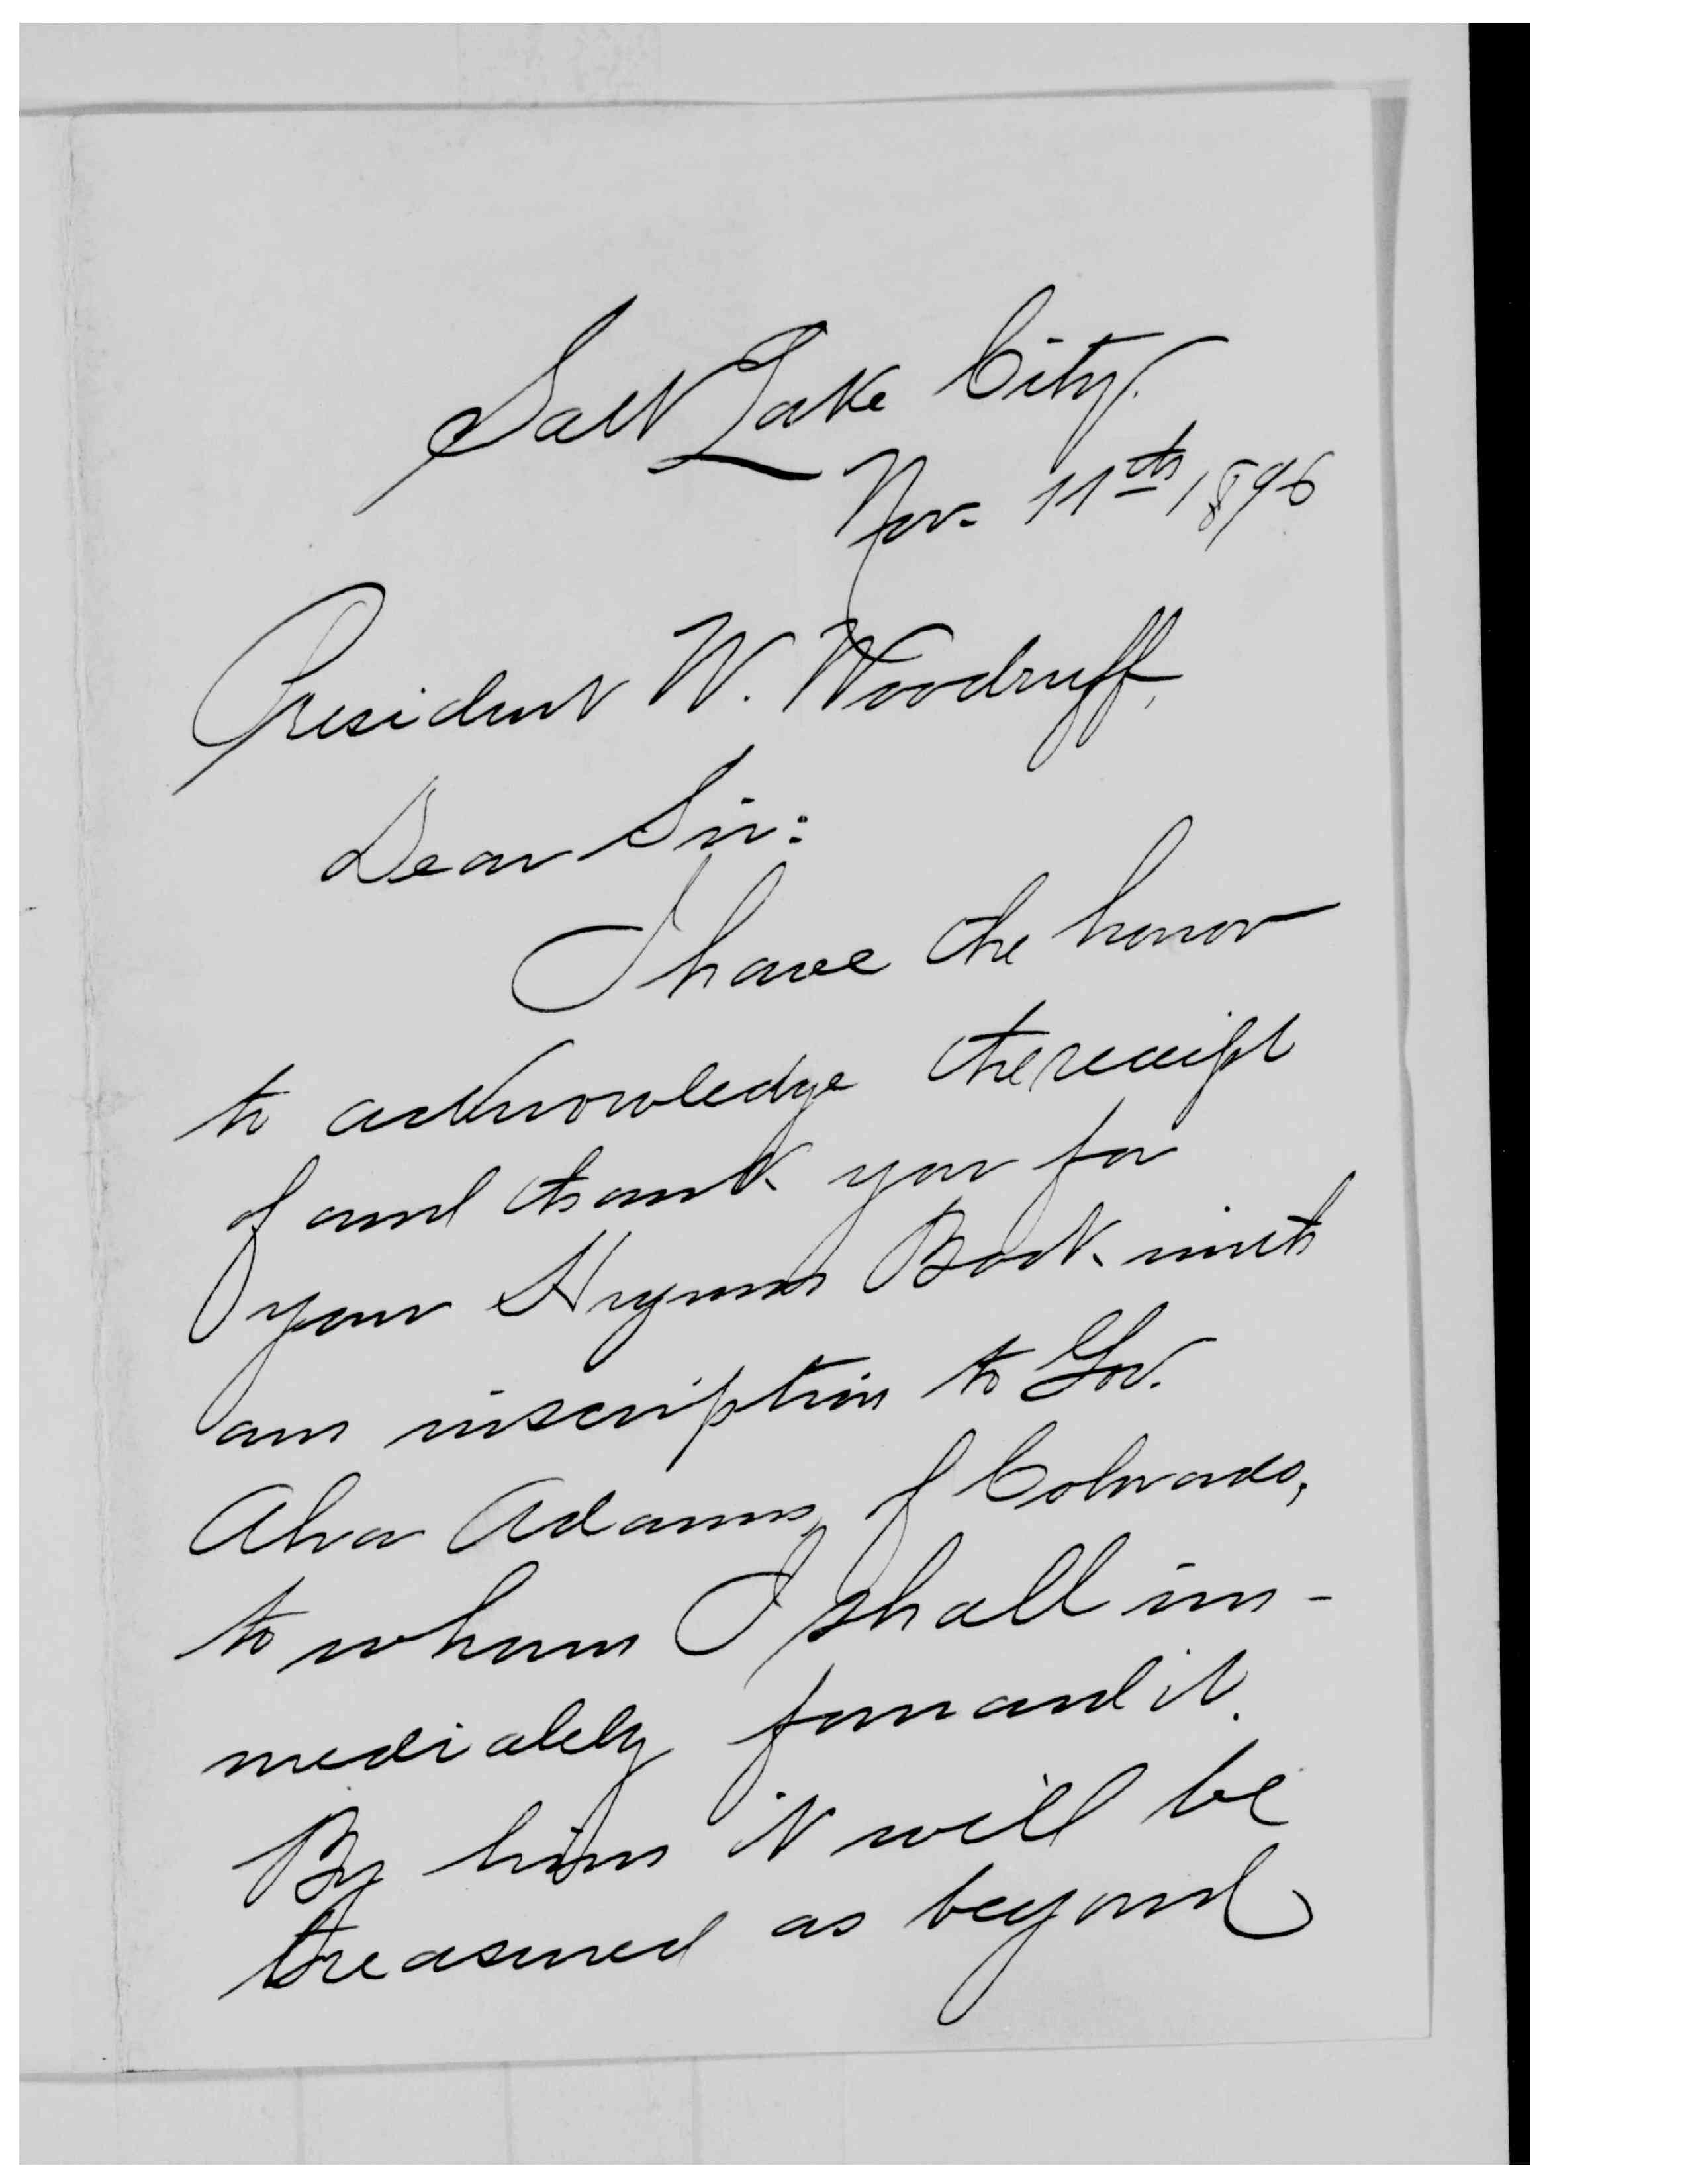 Salt Lake City.
Nov. 11th 1896
President W. Woodruff,
Dear Sir:
I have the honor
to acknowledge the receipt
of and thank you for
your Hymn Book with
an inscription to Gov.
Alva Adams, of Colorado,
to whom I shall im-
mediately forward it.
By him it will be
treasured as beyond